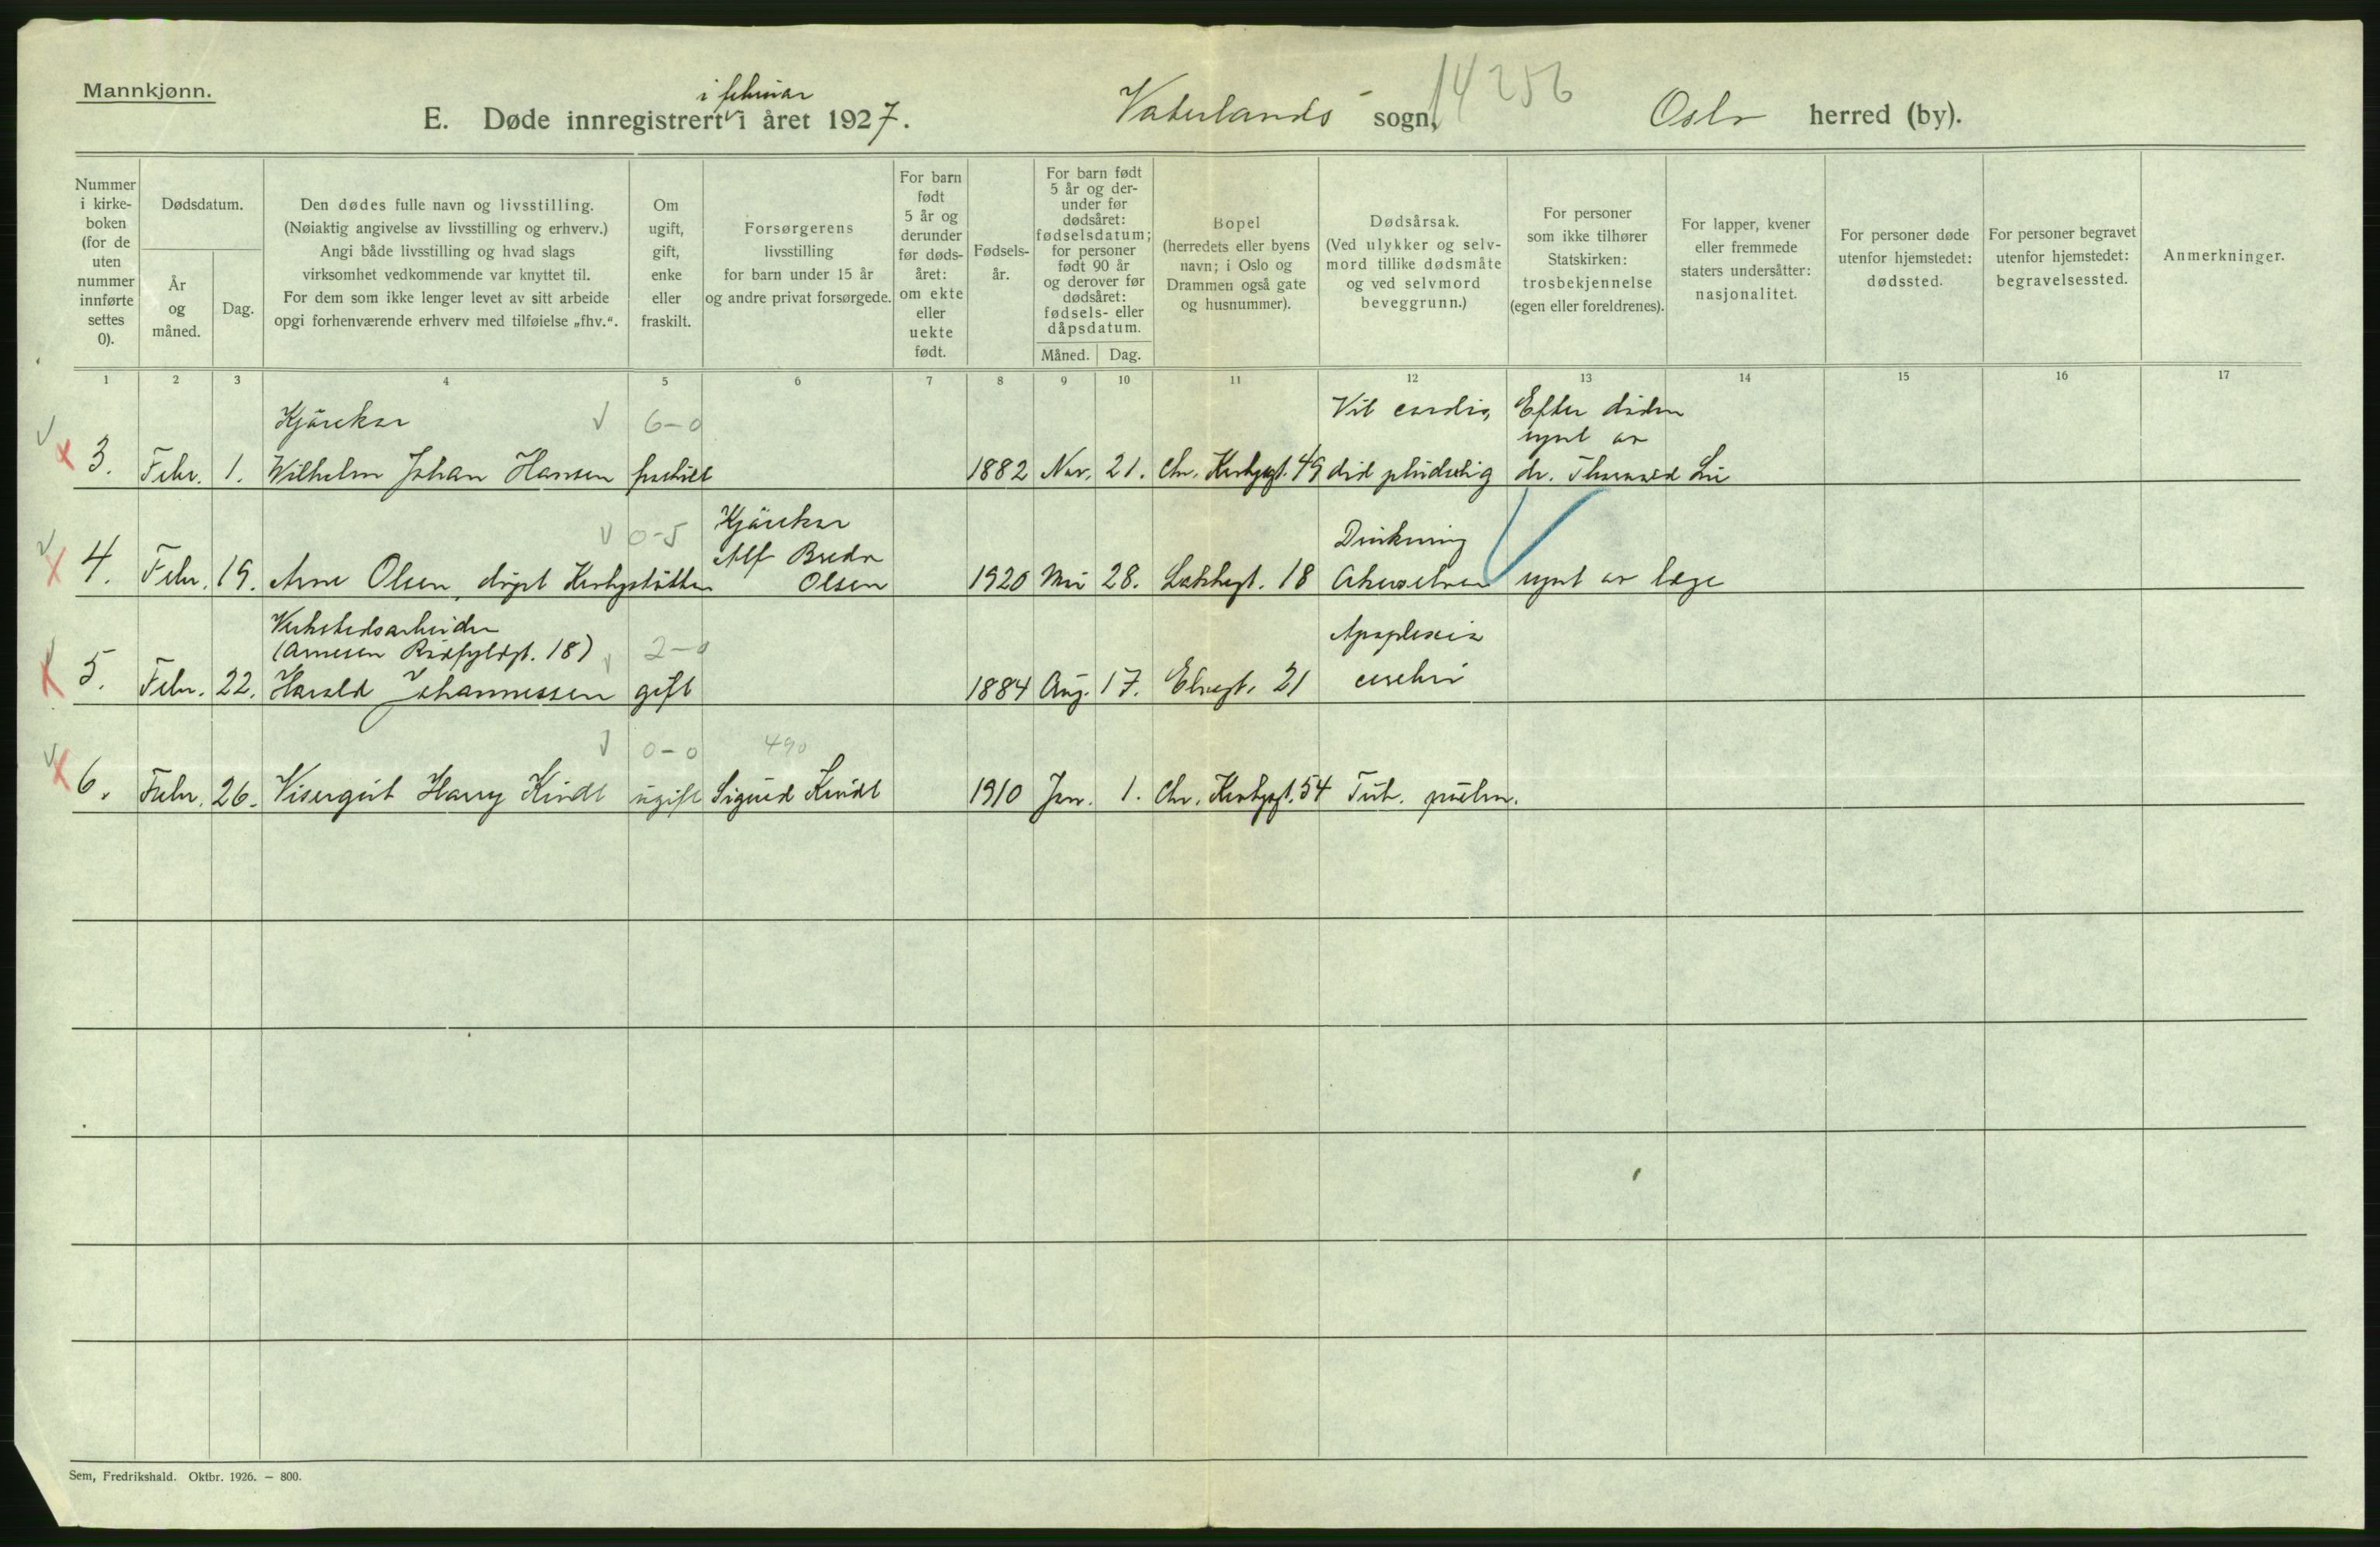 Mannkjønn.
i februar
E. Døde innregistrert i året 1927.
Vaterlands sogn,
14256
Oslo herred (by).
Nummer i kirke-boken (for de uten nummer innførte settes 0).
Dødsdatum.
År og måned.
Dag.
Den dødes fulle navn og livsstilling.
(Nøiaktig angivelse av livsstilling og erhverv.)
Angi både livsstilling og hvad slags
virksomhet vedkommende var knyttet til.
For dem som ikke lenger levet av sitt arbeide
opgi forhenværende erhverv med tilføielse „fhv.“.
Om ugift, gift, enke eller fraskilt.
Forsørgerens
livsstilling
for barn under 15 år
og andre privat forsørgede.
For barn født 5 år og derunder før døds-året: om ekte eller uekte født.
Fødsels-år.
For barn født 5 år og der-under før dødsåret: fødselsdatum; for personer født 90 år og derover før dødsåret: fødsels- eller dåpsdatum.
Måned.
Dag.
Bopel
(herredets eller byens
navn; i Oslo og
Drammen også gate
og husnummer).
Dødsårsak.
(Ved ulykker og selv-
mord tillike dødsmåte
og ved selvmord
beveggrunn.)
For personer
som ikke tilhører
Statskirken:
trosbekjennelse
(egen eller foreldrenes).
For lapper, kvener
eller fremmede
staters undersåtter:
nasjonalitet.
For personer døde
utenfor hjemstedet:
dødssted.
For personer begravet
utenfor hjemstedet:
begravelsessted.
Anmerkninger.
1 2 3 4 5 6 7 8 9 10 11 12 13 14 15 16 17
Kjørekar 6-0 Vit. cordis, Efter døden
synt av
3. Febr. 1. Wilhelm Johan Hansen fraskilt 1882 Nov. 21. Chr. Krohgsgt. 49 død pludselig dr. Thorvald Lie
0-5 Kjørekar
Alf Bredo Drukning
4. Febr. 19. Arne Olsen, døpt Krohgstøtten Olsen 1920 Mai 28. Lakkegt. 18 Akerselven synt av læge
Verkstedsarbeider
(Arnesen Rødfyldgt. 18) 2-0 Apoplexia
5. Febr. 22. Harald Johannessen gift 1884 Aug. 17. Elvegt. 21 cerebri
0-0 490
6. Febr. 26. Visergut Harry Kindt ugift Sigurd Kindt 1910 Jan. 1. Chr. Krohgsgt. 54 Tub. pulm.
Sem, Fredrikshald. Oktbr. 1926. — 800.